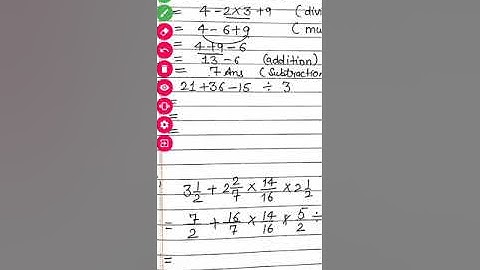 = 4-2×3+9 (div
= 4-6+9 (mu
= 4+9-6
= 13-6 (addition)
= 7 Ans (Subtraction
21+36-15 ÷ 3
=
=
=
3 1/2 + 2 2/7 × 14/16 × 2 1/2
= 7/2 + 16/7 × 14/16 × 5/2 ÷
=